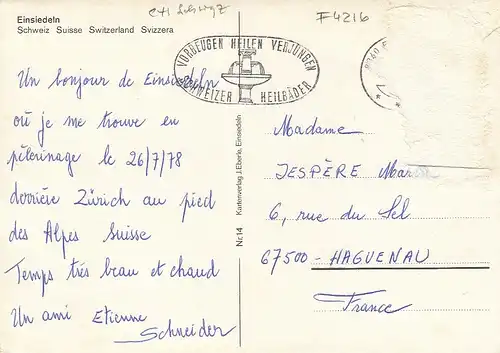 Einsiedeln
Schweiz Suisse Switzerland Svizzera
F4216
VORBEUGEN HEILEN VERJÜNGEN
SCHWEIZER HEILBÄDER
Un bonjour de Einsiedeln
où je me trouve en
pèlerinage le 26/7/78
derrière Zürich au pied
des Alpes Suisse
Temps très beau et chaud
Un ami Etienne
Schneider
Nr. 14
Kartenverlag J. Eberle, Einsiedeln
Madame
JESPÈRE
6, rue du Sel
67500 - HAGUENAU
France